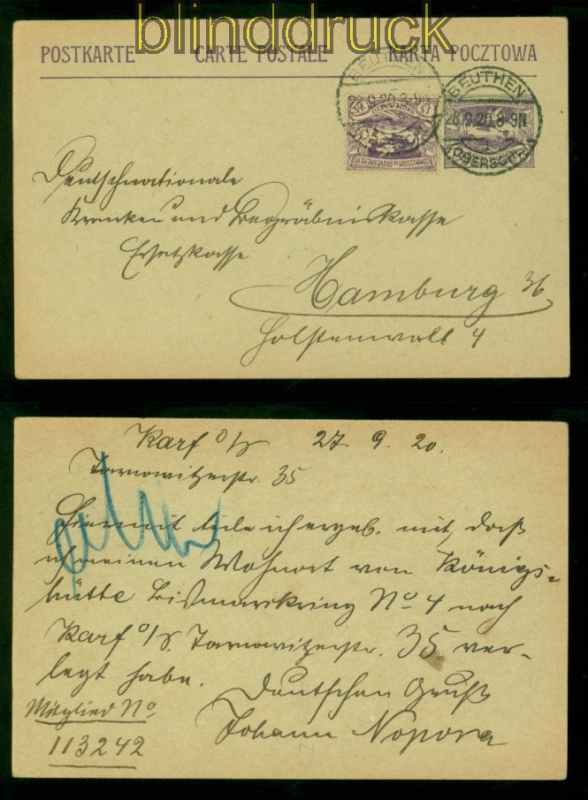 blinddruck
POSTKARTE CARTE POSTALE KARTA POCZTOWA
BEUTHEN
BEUTHEN
28.9.20.8-9N
(OBERSCHL.)
Deutschnationale
Kranken und Begräbniskasse
Ersatzkasse
Hamburg 36
Holstenwall 4
Karf O/S 27. 9. 20.
Tarnowitzerstr. 35
Hiermit teile ich ergeb. mit, daß
ich meinen Wohnort von Königs=
hütte Bismarckring No 4 nach
Karf O/S. Tarnowitzerstr. 35 ver-
legt habe. Deutschen Gruß
Mitglied No
113242
Johann Nopora